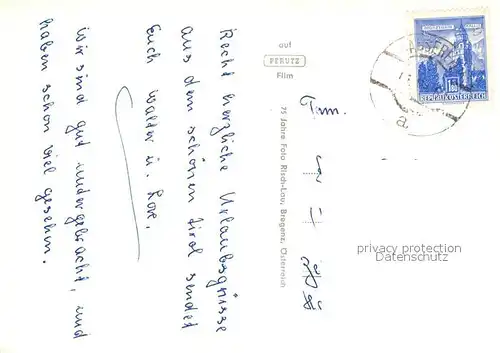 Recht herzliche Urlaubsgrüsse
aus dem schönen Tirol sendet
Euch Walter u. Lore.
Wir sind gut untergebracht, und
haben schon viel gesehen.
auf
PERUTZ
Film
75 Jahre Foto Risch-Lau, Bregenz, Österreich
Fam.
REPUBLIK ÖSTERREICH
a
privacy protection
Datenschutz